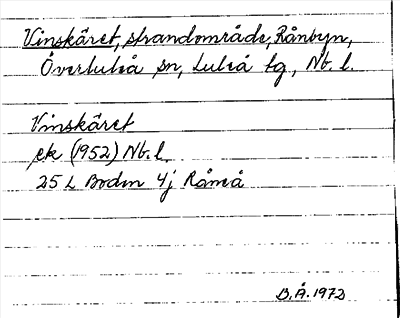 Vinskäret, strandområde, Rånbyn,
Överluleå sn, Luleå tg, Nb. l.
Vinskäret
ek (1952) Nb. l.
25 L Boden 4j Råneå
B.Å. 1972